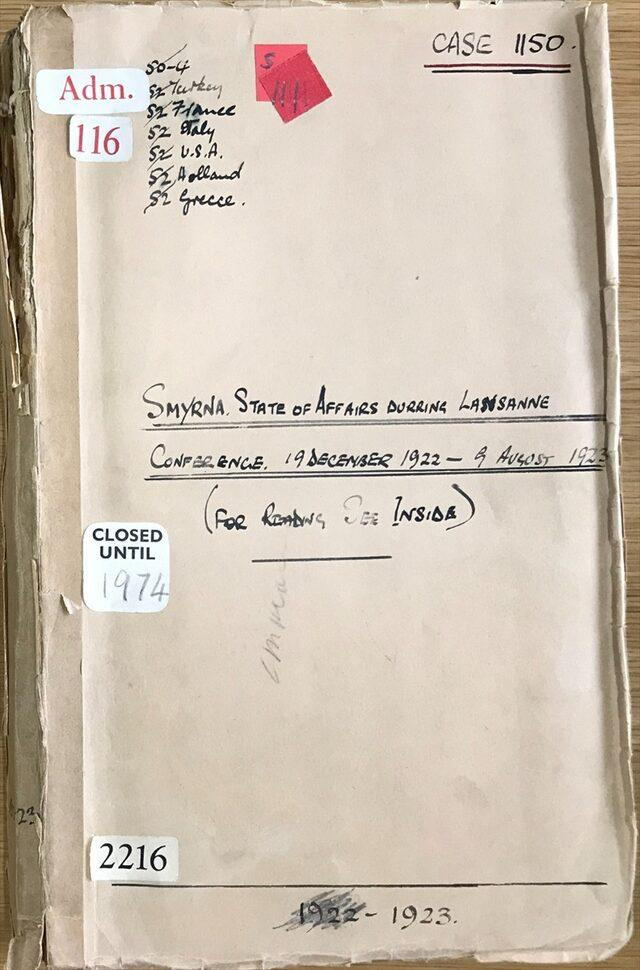 CASE 1150.
50-4
52 Turkey
52 France
52 Italy
52 U.S.A.
52 Holland
52 Greece.
S
Adm.
116
SMYRNA. STATE OF AFFAIRS DURRING LAUSANNE
CONFERENCE. 19 DECEMBER 1922 — 9 AUGUST 1923
(FOR READING SEE INSIDE)
CLOSED
UNTIL
1974
23
2216
1922 - 1923.